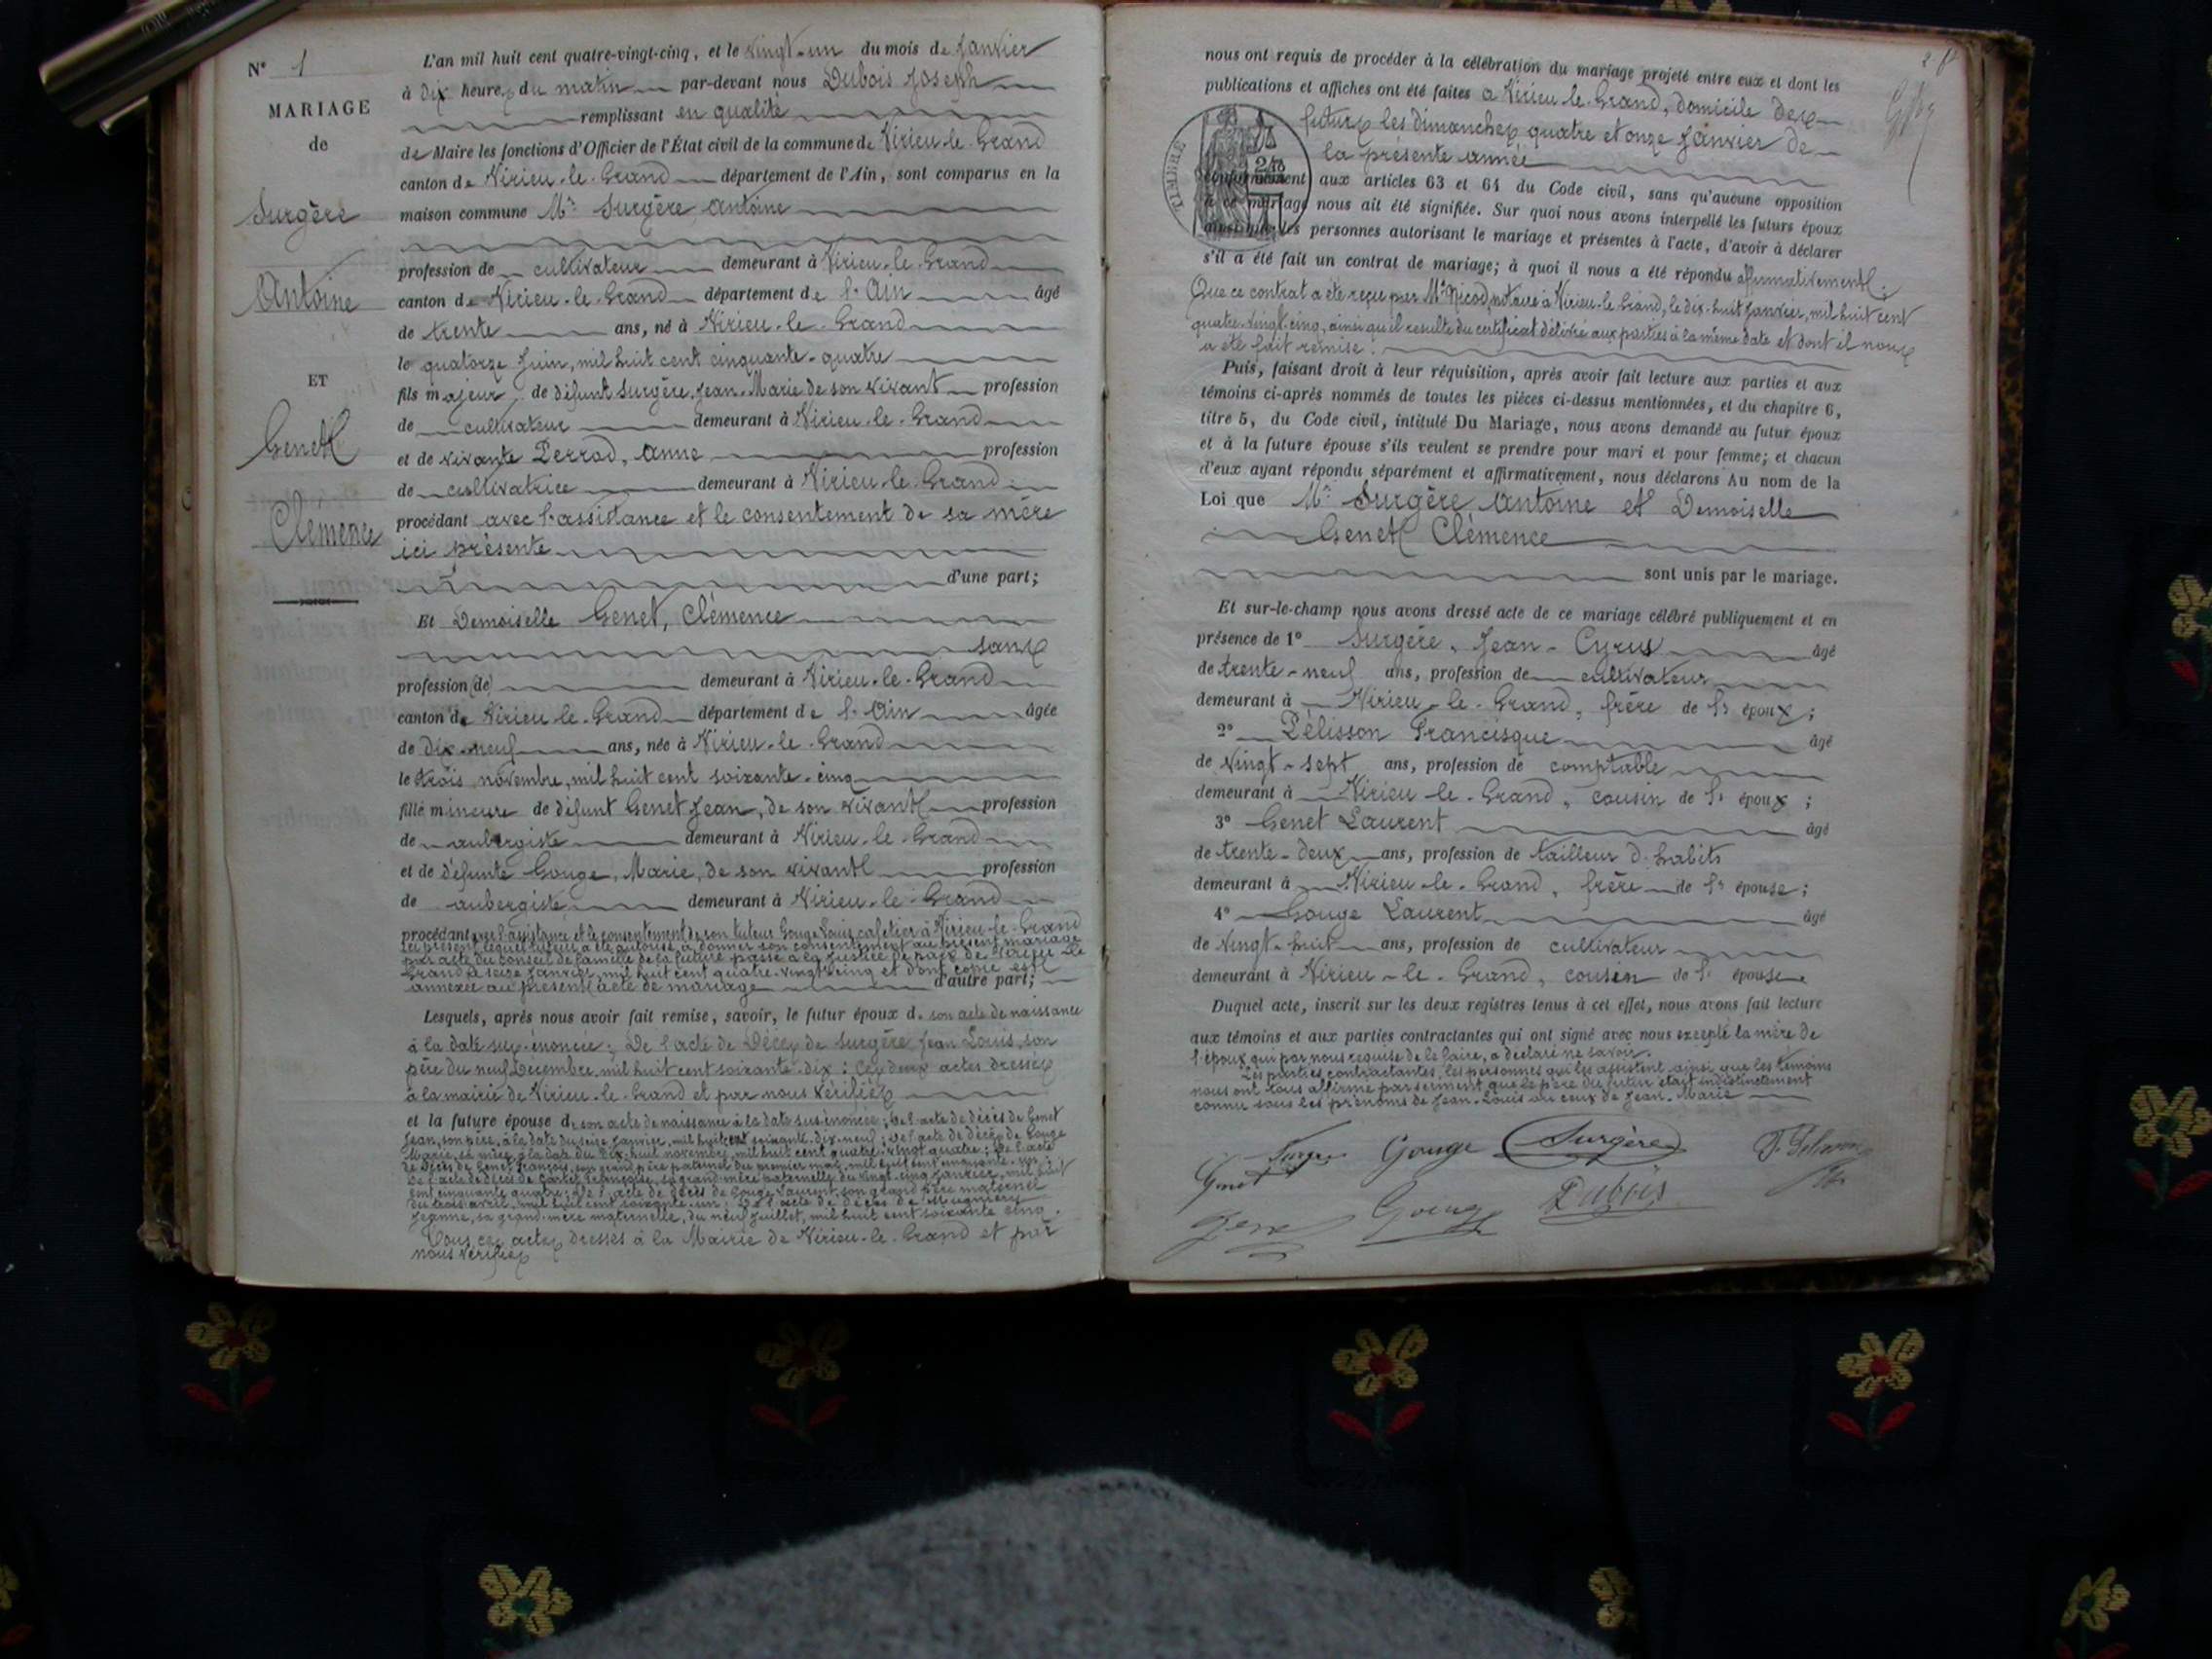 N° 1
MARIAGE
de
Surgère
Antoine
ET
Genet
Clémence
L'an mil huit cent quatre-vingt-cinq, et le vingt-un du mois de Janvier
à dix heures du matin par-devant nous Dubois Joseph
remplissant en qualité
de Maire les fonctions d'Officier de l'État civil de la commune de Virieu-le-Grand
canton de Virieu-le-Grand département de l'Ain, sont comparus en la
maison commune Mr Surgère Antoine
profession de cultivateur demeurant à Virieu-le-Grand
canton de Virieu-le-Grand département de l'Ain âgé
de trente ans, né à Virieu-le-Grand
le quatorze Juin, mil huit cent cinquante-quatre
fils majeur de défunt Surgère Jean-Marie de son vivant profession
de cultivateur demeurant à Virieu-le-Grand
et de vivante Perrod, Anne profession
de cultivatrice demeurant à Virieu-le-Grand
procédant avec l'assistance et le consentement de sa mère
ici présente
d'une part;
Et Demoiselle Genet, Clémence
sans
profession (de) demeurant à Virieu-le-Grand
canton de Virieu-le-Grand département de l'Ain âgée
de dix-neuf ans, née à Virieu-le-Grand
le trois novembre, mil huit cent soixante-cinq
fille mineure de défunt Genet Jean, de son vivant profession
de aubergiste demeurant à Virieu-le-Grand
et de défunte Gouge, Marie, de son vivant profession
de aubergiste demeurant à Virieu-le-Grand
procédant avec l'assistance et le consentement de son tuteur Gouge Louis cafetier à Virieu-le-Grand
ici présent, lequel tuteur a été autorisé à donner son consentement au présent mariage
par acte du conseil de famille de la future passé à la Justice de paix de Virieu-le
Grand le seize Janvier, mil huit cent quatre-vingt-cinq et dont copie est
annexée au présent acte de mariage d'autre part;
Lesquels, après nous avoir fait remise, savoir, le futur époux de son acte de naissance
à la date sus-énoncée; De l'acte de Décès de Surgère Jean Louis, son
père du neuf Décembre, mil huit cent soixante-dix: Ces deux actes dressés
à la mairie de Virieu-le-Grand et par nous vérifiés
et la future épouse de son acte de naissance à la date sus-énoncée; De l'acte de décès de Genet
Jean, son père, à la date du seize Janvier, mil huit cent soixante-dix-neuf; De l'acte de décès de Gouge
Marie, sa mère, à la date du dix-huit novembre, mil huit cent quatre-vingt quatre; De l'acte
de Décès de Genet François, son grand-père paternel du premier mai, mil huit cent cinquante-un;
De l'acte de décès de Françoise, sa grand-mère paternelle du vingt-cinq Janvier, mil huit
cent cinquante quatre; De l'acte de décès de Gouge Laurent, son grand père maternel
du trois avril, mil huit cent soixante-un; De l'acte de décès de
Jeanne, sa grand-mère maternelle, du neuf Juillet, mil huit cent soixante cinq.
Tous ces actes dressés à la Mairie de Virieu-le-Grand et par
nous vérifiés
nous ont requis de procéder à la célébration du mariage projeté entre eux et dont les
publications et affiches ont été faites à Virieu-le-Grand, domicile des
futurs les dimanches quatre et onze Janvier de
la présente année
TIMBRE
conformément aux articles 63 et 64 du Code civil, sans qu'aucune opposition
à ce mariage nous ait été signifiée. Sur quoi nous avons interpellé les futurs époux
ainsi que les personnes autorisant le mariage et présentes à l'acte, d'avoir à déclarer
s'il a été fait un contrat de mariage; à quoi il nous a été répondu affirmativement;
Que ce contrat a été reçu par Me Nicod, notaire à Virieu-le-Grand, le dix-huit Janvier, mil huit cent
quatre-vingt-cinq, ainsi qu'il résulte du certificat délivré aux parties à la même date et dont il nous
a été fait remise.
Puis, faisant droit à leur réquisition, après avoir fait lecture aux parties et aux
témoins ci-après nommés de toutes les pièces ci-dessus mentionnées, et du chapitre 6,
titre 5, du Code civil, intitulé Du Mariage, nous avons demandé au futur époux
et à la future épouse s'ils veulent se prendre pour mari et pour femme; et chacun
d'eux ayant répondu séparément et affirmativement, nous déclarons Au nom de la
Loi que Mr Surgère Antoine et Demoiselle
Genet Clémence
sont unis par le mariage.
Et sur-le-champ nous avons dressé acte de ce mariage célébré publiquement et en
présence de 1° Surgère, Jean-Cyrus âgé
de trente-neuf ans, profession de cultivateur
demeurant à Virieu-le-Grand, frère de l' époux;
2° Pélisson Francisque âgé
de vingt-sept ans, profession de comptable
demeurant à Virieu-le-Grand, cousin de l' époux;
3° Genet Laurent âgé
de trente-deux ans, profession de tailleur d'habits
demeurant à Virieu-le-Grand, frère de l' épouse;
4° Gouge Laurent âgé
de vingt-huit ans, profession de cultivateur
demeurant à Virieu-le-Grand, cousin de l' épouse
Duquel acte, inscrit sur les deux registres tenus à cet effet, nous avons fait lecture
aux témoins et aux parties contractantes qui ont signé avec nous excepté la mère de
l'époux qui par nous requise de le faire, a déclaré ne savoir.
Les parties contractantes, les personnes qui les assistent ainsi que les témoins
nous ont tous affirmé par serment que le père du futur était indistinctement
connu sous les prénoms de Jean-Louis ou ceux de Jean-Marie
Gouge Surgère
Genet
Gouge Dubois